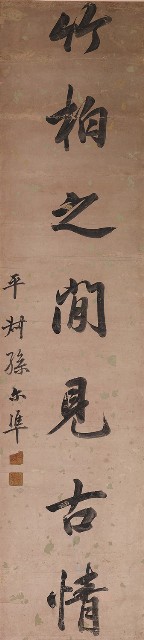 竹柏之間見古情
平叔孫尔準